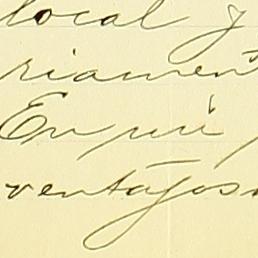 local y
riament
En mi p
ventajos